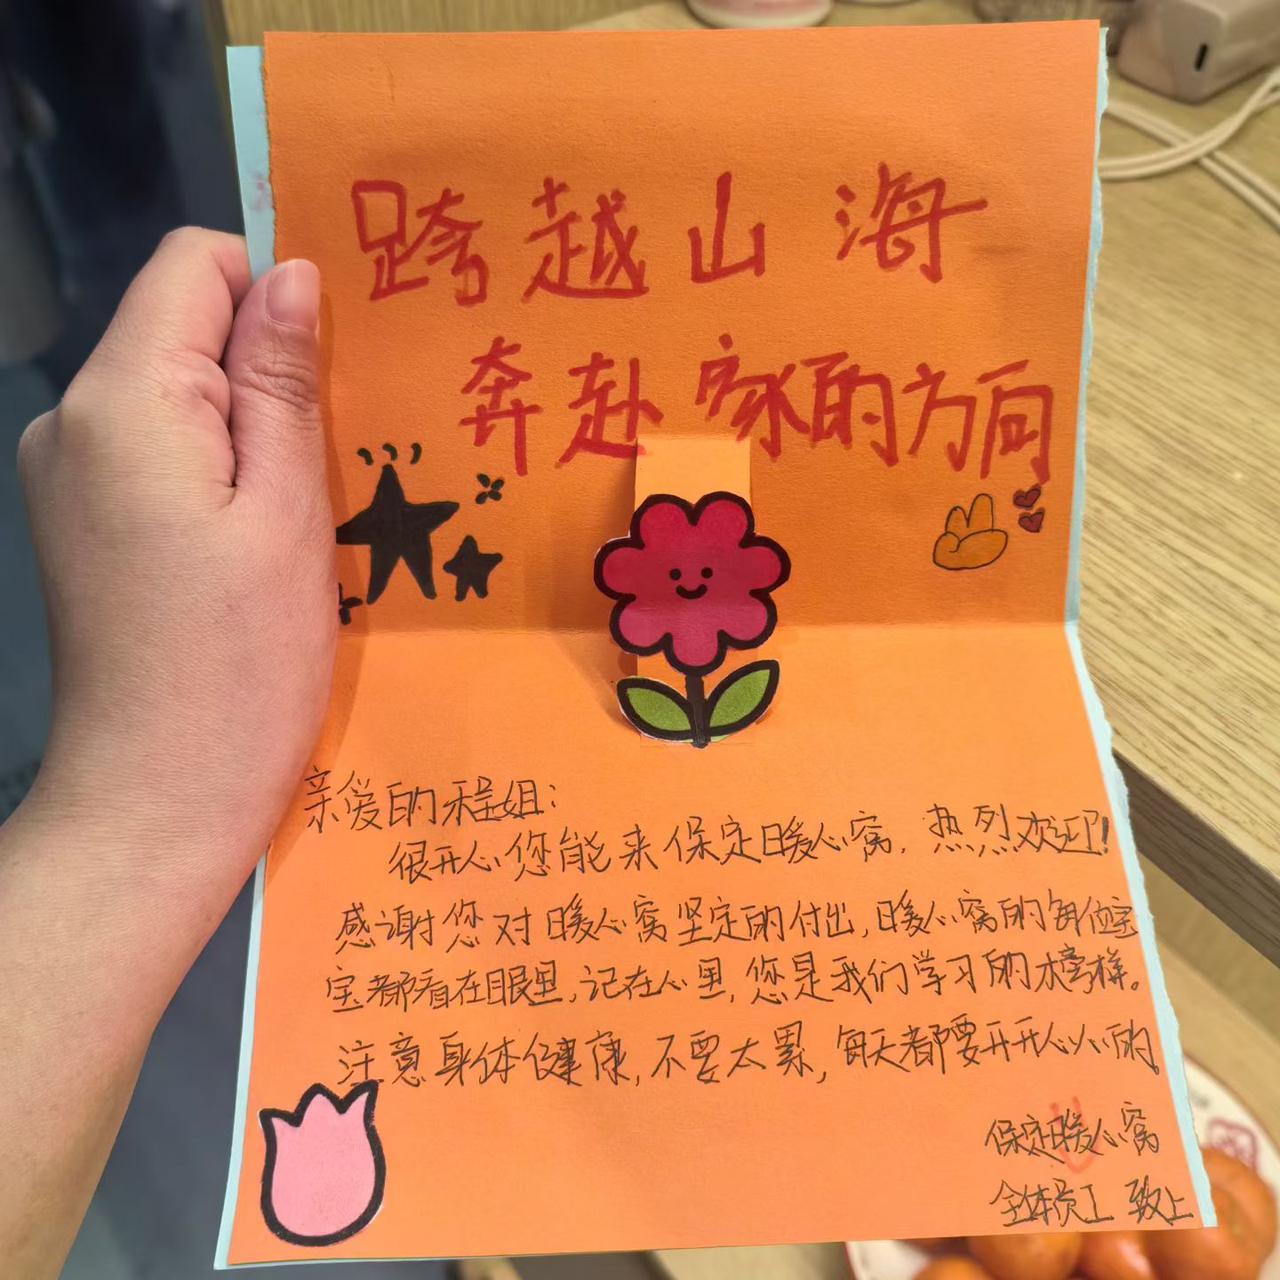 跨越山海
奔赴家的方向
亲爱的程姐：
很开心您能来保定暖心窝，热烈欢迎！
感谢您对暖心窝坚定的付出，暖心窝的每位宝
宝都看在眼里，记在心里，您是我们学习的榜样。
注意身体健康，不要太累，每天都要开开心心的
保定暖心窝
全体员工 致上